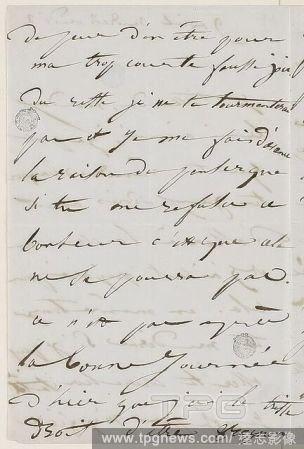 de peur d'en être pour
ma trop courte fausse joie
Du reste je ne te tourmenterai
pas et je me fais d'avance
la raison de penser que
si tu me refuses ce
bonheur c'est que cela
ne se pourra pas.
ce n'est pas après
la bonne journée
d'hier que j'ai le triste
droit d'être
TPG
www.tpgnews.com/達志影像